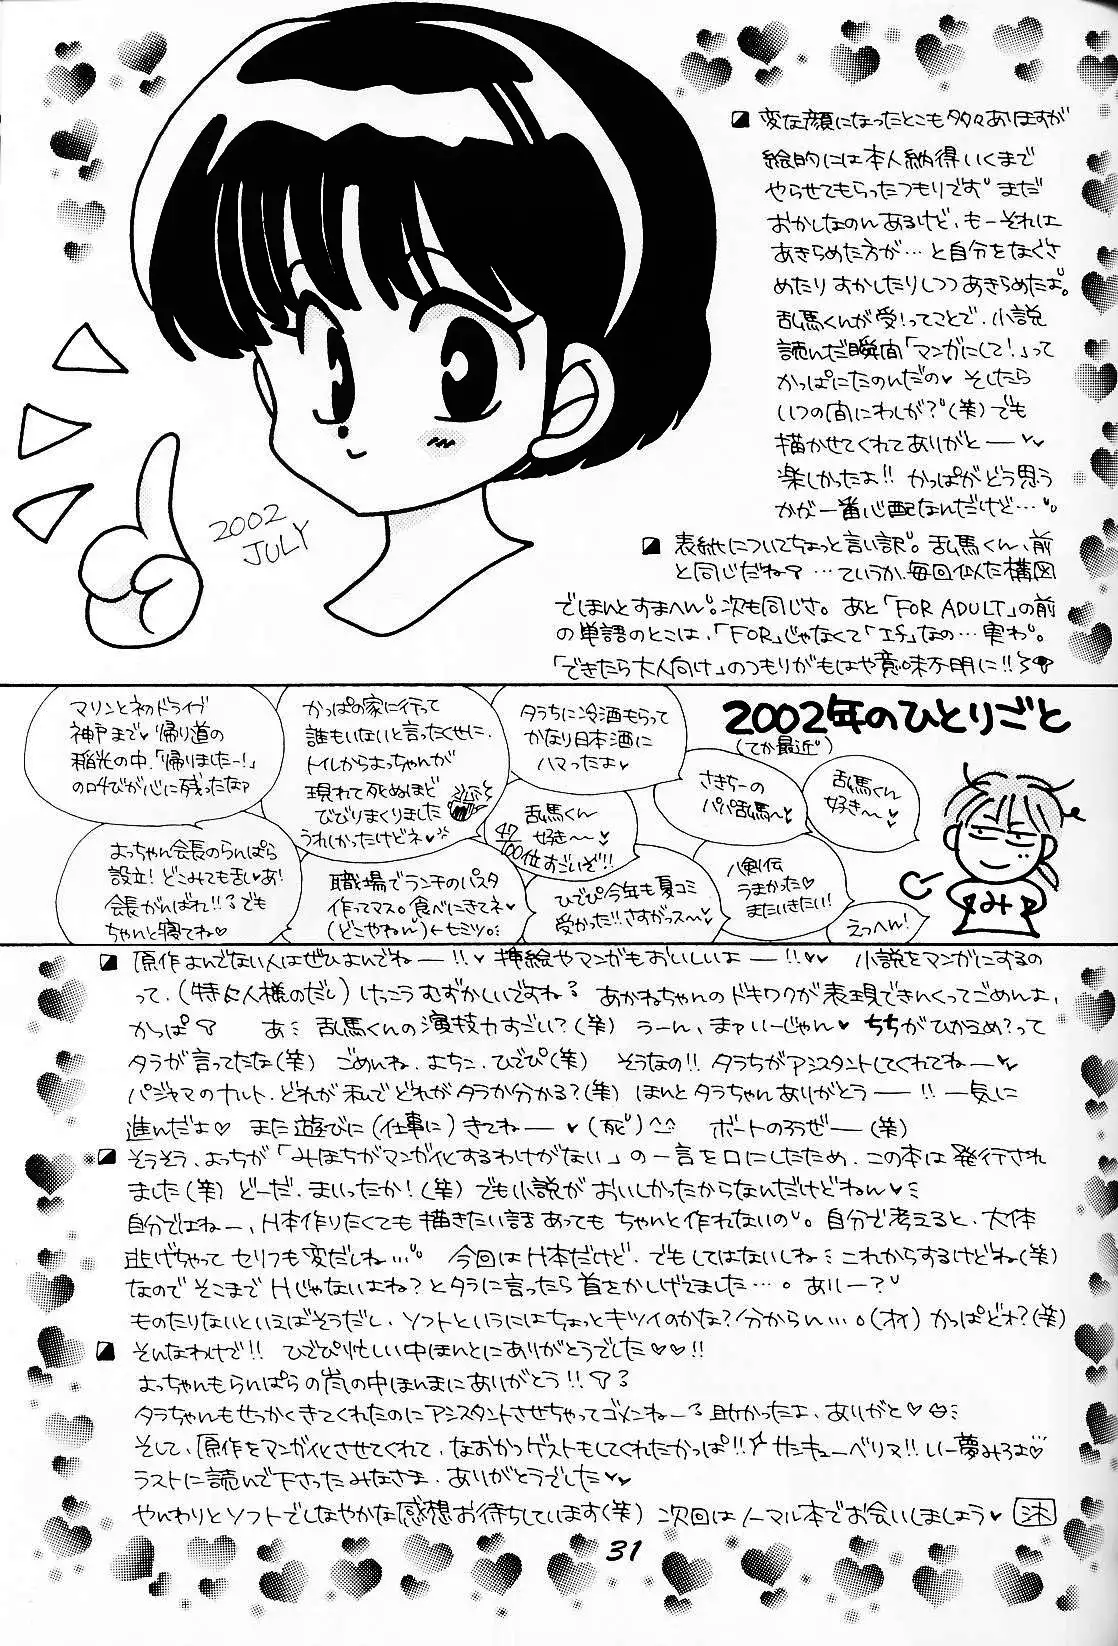 変な顔になったとこも多々ありますが
絵的には本人納得いくまで
やらせてもらったつもりです。まだ
おかしなのんあるけど、もーそれは
あきらめた方が…と自分をなぐさ
めたり おかしたりしつつ あきらめたよ。
乱馬くんが受!ってことで、小説
読んだ瞬間「マンガにして!」って
かっぱにたのんだの♥ そしたら
いつの間にわしが?(笑)でも
描かせてくれてありがとー♥
楽しかったよ!! かっぱがどう思う
かが一番心配なんだけど…。
2002
JULY
表紙についてちょっと言い訳。乱馬くん、前
と同じだね …ていうか、毎回似た構図
でほんとすまへん。次も同じさ。あと「FOR ADULT」の前
の単語のとこは、「FOR」じゃなくて「If」なの…実わ。
「できたら大人向け」のつもりがもはや意味不明に!!
2002年のひとりごと
(てか最近)
マリンとネのドライブ
神戸まで♥帰り道の
稲光の中、「帰りましたー!」
の叫びが心に残ったなァ
かっぱの家に行って
誰もいないと言ったくせに、
トイレからよっちゃんが
現れて死ぬほど
びびりまくりました
うれしかったけどネ♥
タラちに冷酒もらって
かなり日本酒に
ハマったよ♥
さきちーの
パパ乱馬〜♥
乱馬くん
好き〜♥
乱馬くん
好き〜〜♥
47/100位すごいぞ!!
よっちゃん会長のらんぱら
設立! どこみても乱♥あ!
会長がんばれ!! でも
ちゃんと寝てね♥
職場でランチのパスタ
作ってマス。食べにきてネ♥
(どこやねん)←七ミツ。
ひでぴ今年も夏コミ
受かった!! さすがっス〜♥
八剣伝
うまかった♥
またいきたい!
えっへん!
み
原作よんでない人はぜひよんでねー!!♥ 挿絵やマンガもおいしいよー!!♥♥ 小説をマンガにするの
って、(特に人様のだし)けっこうむずかしいですね あかねちゃんのドキワクが表現できんくってごめんよ、
かっぱ あ 乱馬くんの演技力すごい?(笑) うーん、まァいーじゃん♥ ちちがひかえめ?って
タラが言ってたな(笑) ごめんね、よちこ、ひでぴ(笑) そうなの!! タラちがアシスタントしてくれてねー♥
パジャマのナルト、どれが私でどれがタラか分かる?(笑) ほんとタラちゃんありがとうー!! 一気に
進んだよ♡ また遊びに(仕事に)きてねー♥(死)^^ ボートの3うぜー(笑)
そうそう、よっちが「みほちがマンガ化するわけがない」の一言を口にしたため、この本は発行され
ました(笑) どーだ、まいったか!(笑) でも小説がおいしかったからなんだけどねん♥
自分ではねー、H本作りたくても描きたい話あってもちゃんと作れないの。自分で考えると、大体
逃げちゃってセリフも変だしね…。 今回はH本だけど、でもしてはないしね これからするけどね(笑)
なので そこまでHじゃないよね?とタラに言ったら首をかしげてました…。ありー?
ものたりないといえばそうだし、ソフトというにはちょっとキツイのかな?分からん…。(オイ) かっぱどォ?(笑)
そんなわけで!! ひでぴ忙しい中ほんとにありがとうでした♥♥!!
よっちゃんもらんぱらの嵐の中ほんまにありがとう!!
タラちゃんもせっかくきてくれたのにアシスタントさせちゃってゴメンねー 助かったよ、ありがと♡
そして、原作をマンガ化させてくれて、なおかつゲストもしてくれたかっぱ!! サンキューベリマ!! いー夢みろよ♡
ラストに読んで下さったみなさま、ありがとうでした♥
やんわりとソフトでしなやかな感想お待ちしています(笑) 次回はノーマル本でお会いしましょう♥
31